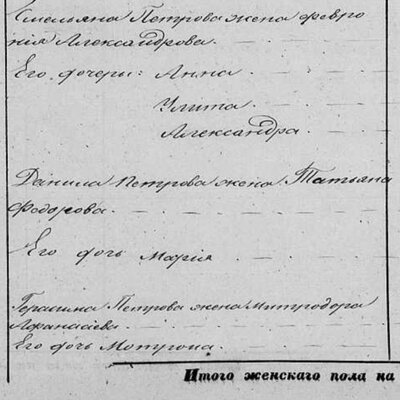 Емельяна Петрова жена февро
нія Александрова.
Его дочери: Анна
Улита
Александра.
Данила Петрова жена Татьяна
Федорова.
Его дочь Марія
Герасима Петрова жена Митродора
Афанасьева.
Его дочь Мотрона.
Итого женскаго пола на